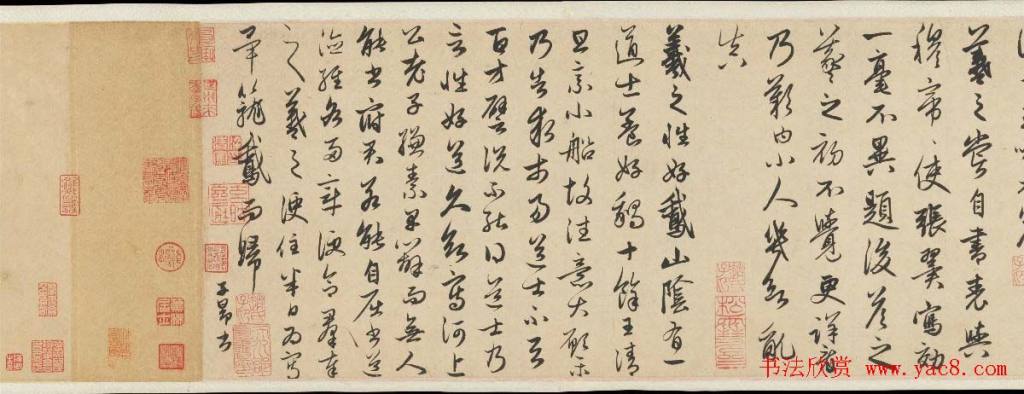 羲之嘗自書表與
穆帝〻使張翼寫効
一毫不異題後答之
羲之初不覺更詳看
乃歎曰小人幾欲亂
真
羲之性好鵞山陰有一
道士養好鵝十餘王清
旦乘小船故往意大願樂
乃告求市易道士不与
百方譬說不能得道士乃
言性好道久欲寫河上
公老子縑素早辦而無人
能書府君若能自屈書道
德經各兩章便合羣奉
之羲之便住半日為寫
畢籠鵞而歸
子昂書
书法欣赏 www.yac8.com